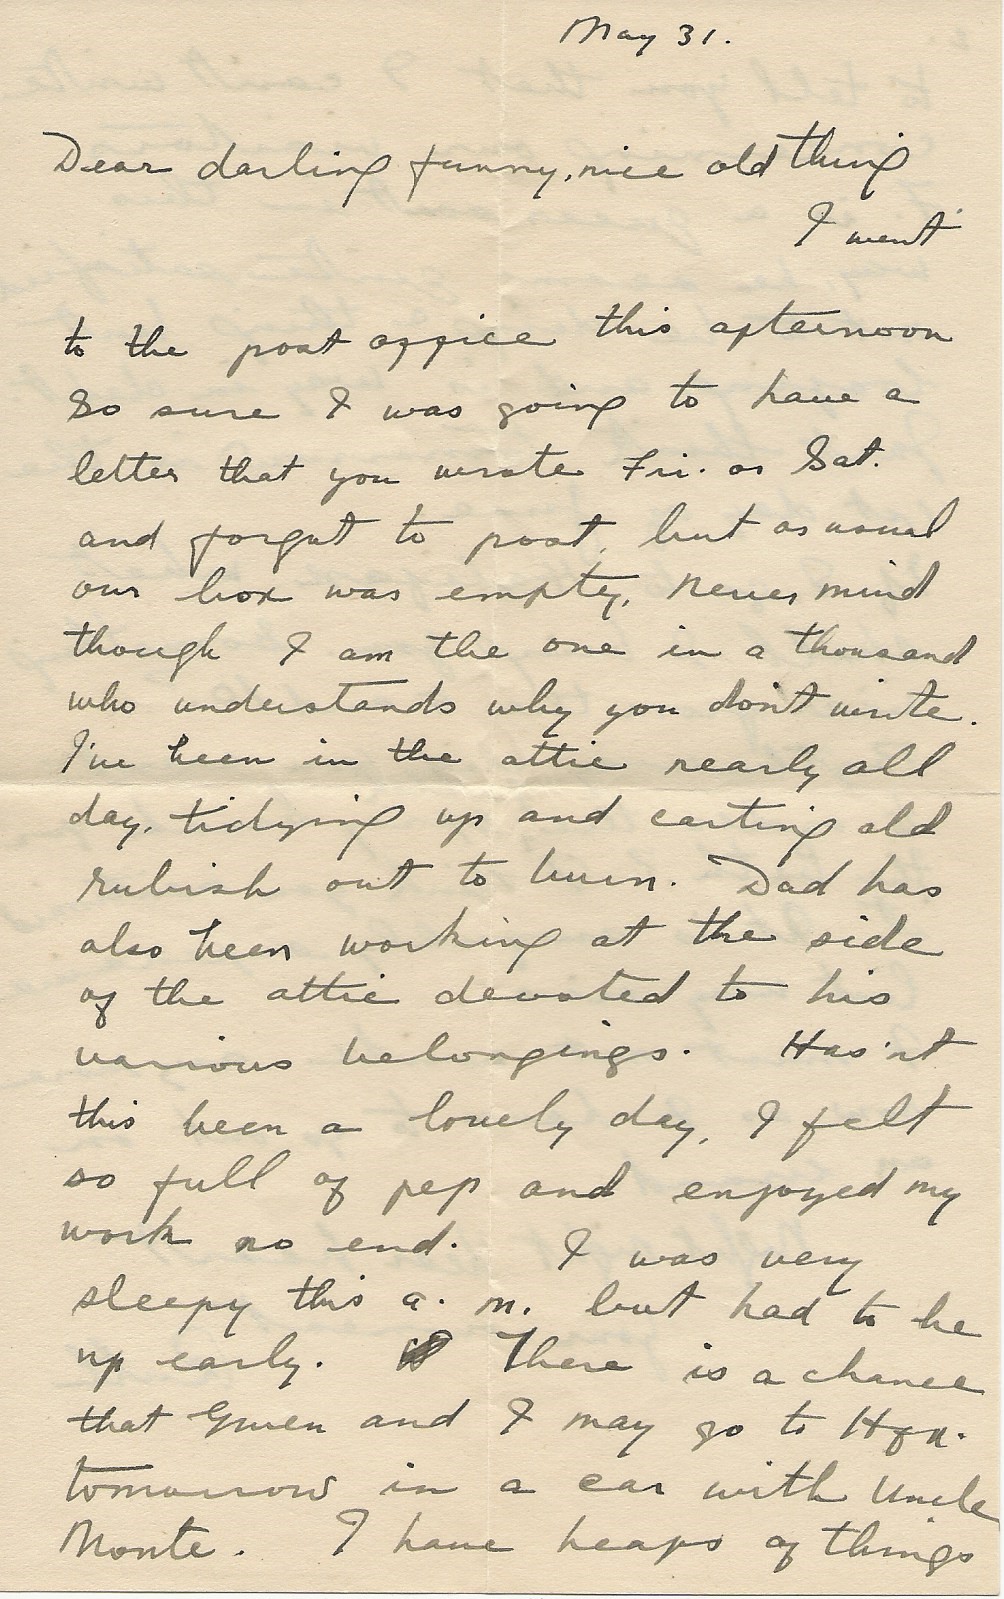 May 31.
Dear darling funny, nice old thing
I went
to the post office this afternoon
so sure I was going to have a
letter that you wrote Fri. or Sat.
and forgot to post, but as usual
our box was empty. Never mind
though I am the one in a thousand
who understands why you don't write.
I've been in the attic nearly all
day, tidying up and carting old
rubish out to burn. Dad has
also been working at the side
of the attic devoted to his
various belongings. Has'nt
this been a lovely day, I felt
so full of pep and enjoyed my
work no end. I was very
sleepy this a. m. but had to be
up early. There is a chance
that Gwen and I may go to Hfx.
tomorrow in a car with Uncle
Monte. I have heaps of things